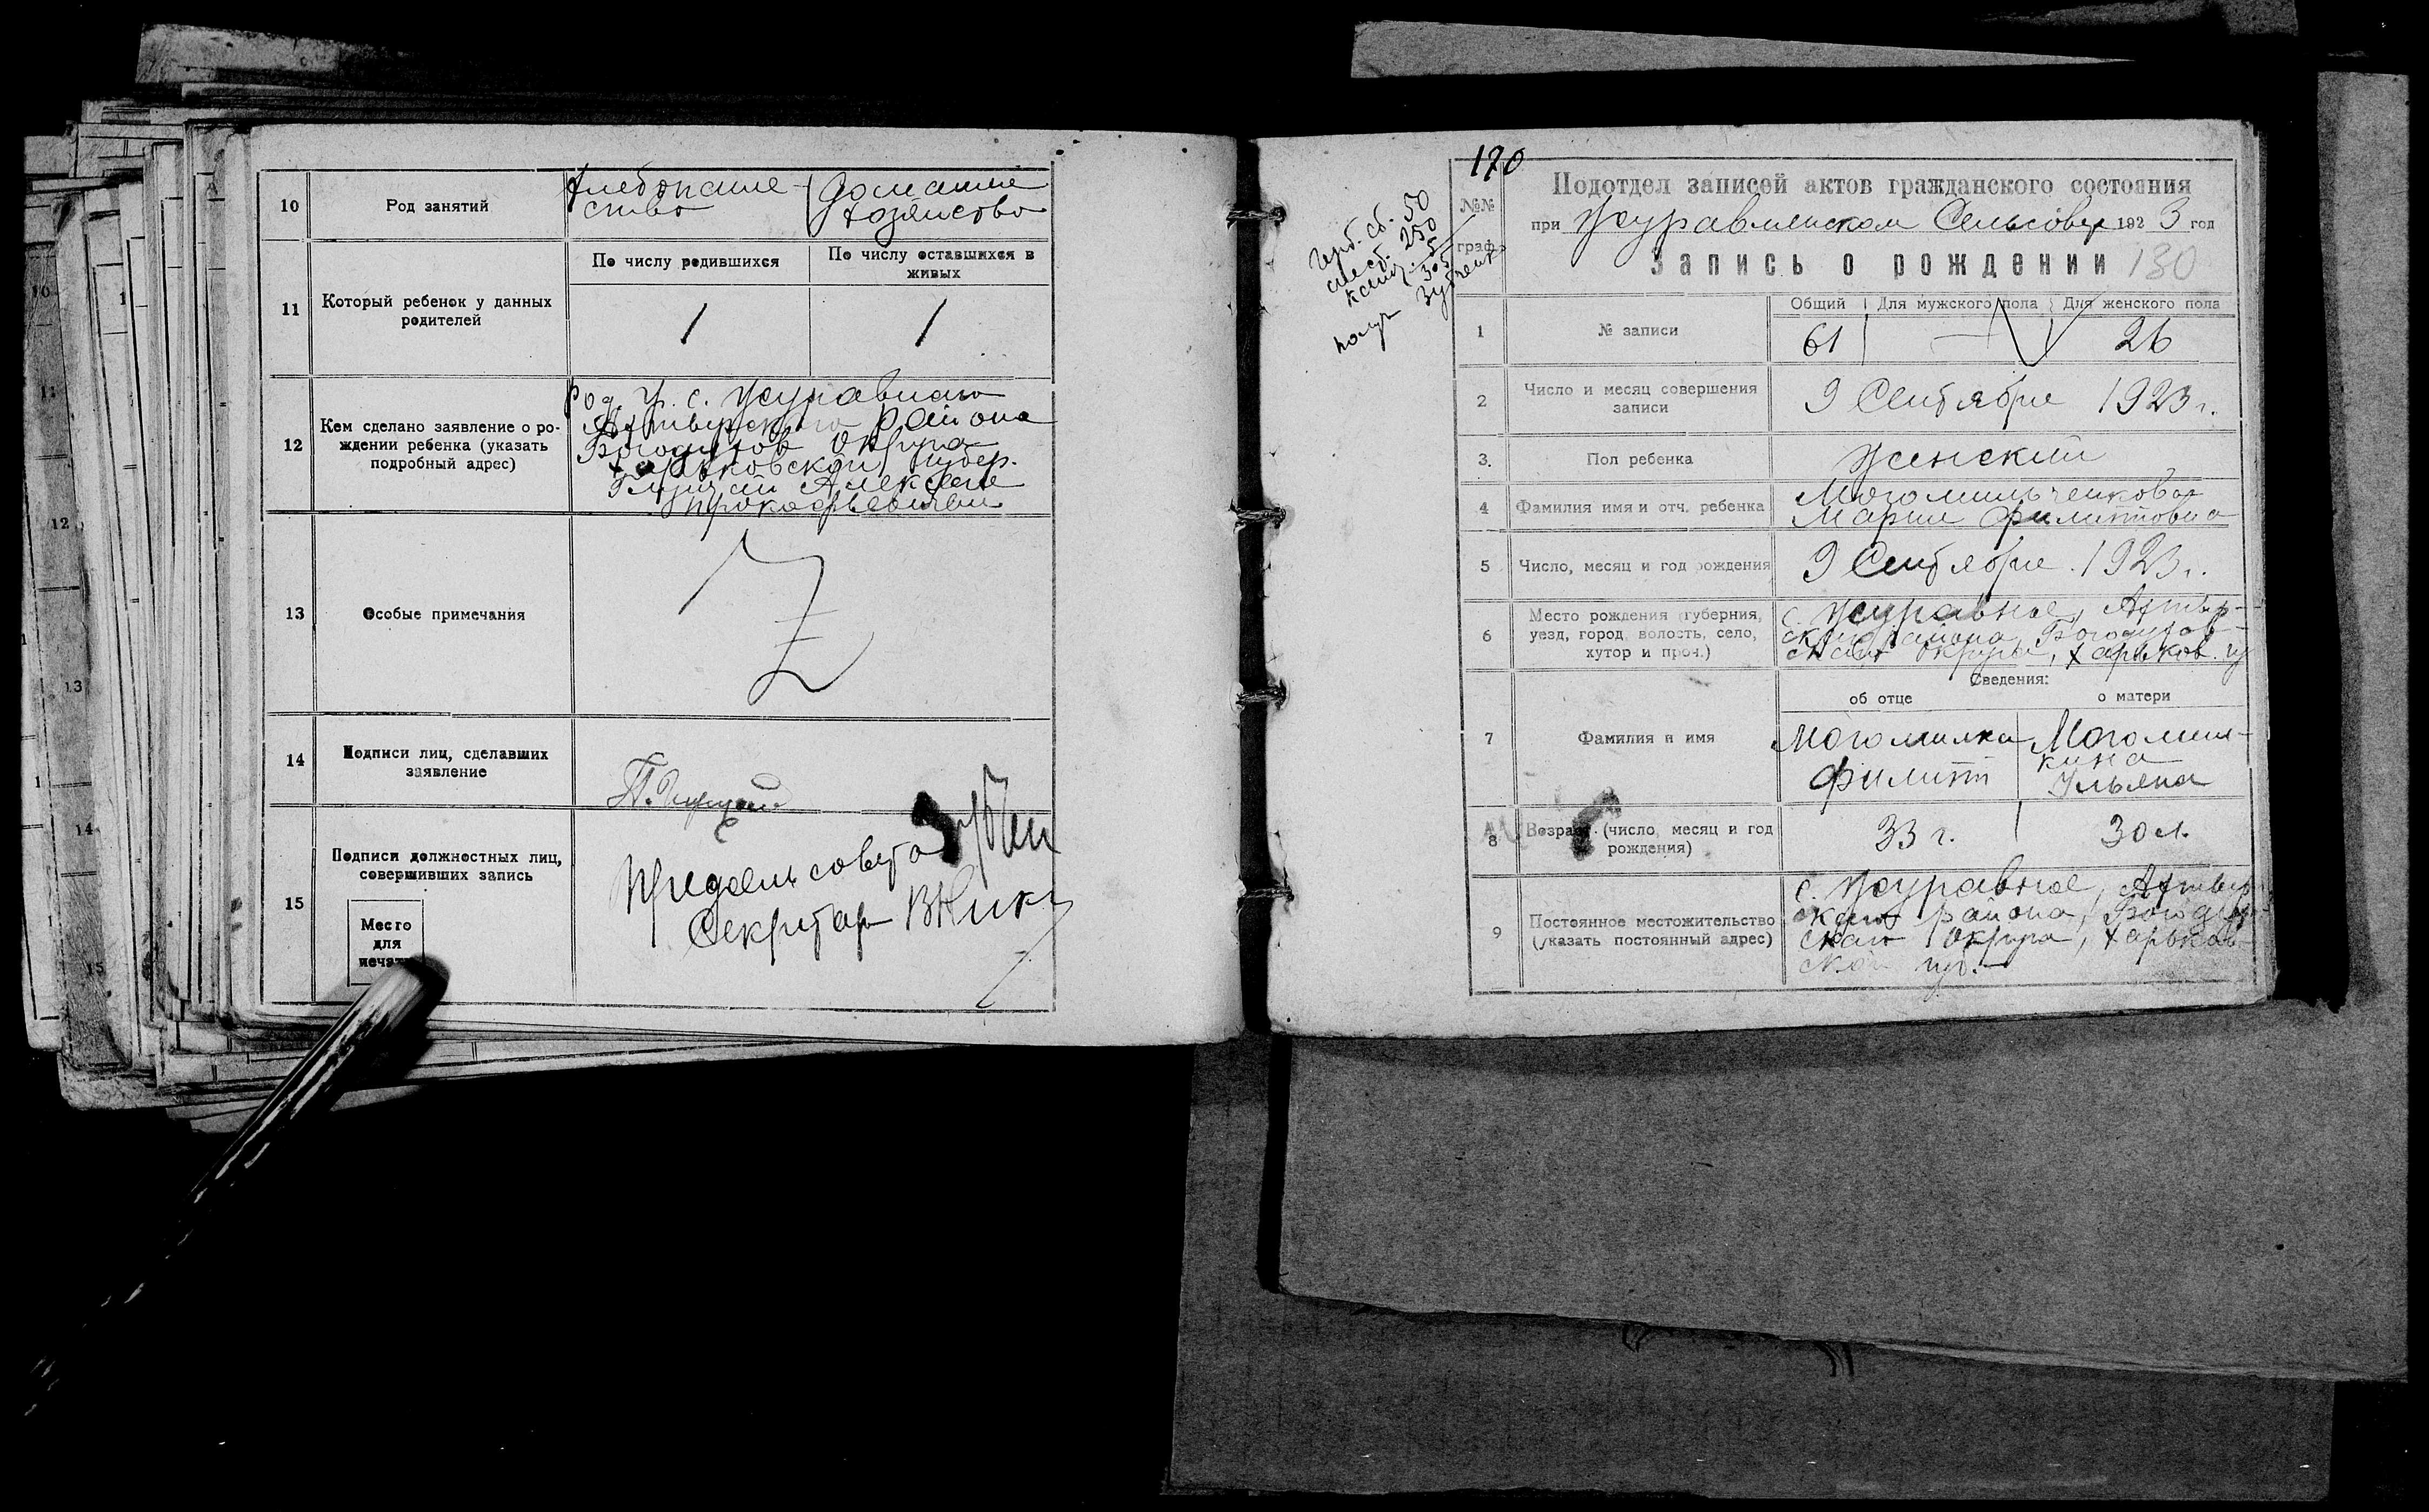 10
Род занятий
Хлебопаше-
ство
Домашнее
хозяйство
11
Который ребенок у данных
родителей
По числу родившихся
По числу оставшихся в
живых
1
1
12
Кем сделано заявление о ро-
ждении ребенка (указать
подробный адрес)
с. Журавного
Ахтырского района
Богодухов округа
Харьковской губер.
Алексеем
Прокофьевичем
13
Особые примечания
14
Подписи лиц, сделавших
заявление
15
Подписи должностных лиц,
совершивших запись
Место
для
печати
Предсельсовета
Секретарь
170
Герб. сб. 50
мест. 250
канц. 5
305
получ
№№
граф.
Подотдел записей актов гражданского состояния
при Журавлинском Сельсовете 1923 год
Запись о рождении 130
1
№ записи
Общий
Для мужского пола
Для женского пола
61
—
26
2
Число и месяц совершения
записи
9 Сентября 1923 г.
3.
Пол ребенка
Женский
4
Фамилия имя и отч. ребенка
Мария Филипповна
5
Число, месяц и год рождения
9 Сентября 1923 г.
6
Место рождения (губерния,
уезд, город, волость, село,
хутор и проч.)
с. Журавное, Ахтыр-
ского района, Богодухов-
ского округа, Харьков. гу
Сведения:
об отце
о матери
7
Фамилия и имя
Филипп
Ульяна
8
Возраст. (число, месяц и год
рождения)
33 г.
30 л.
9
Постоянное местожительство
(указать постоянный адрес)
с. Журавное, Ахтыр
ского района, Богодух-
ского округа, Харьков-
ской губ.